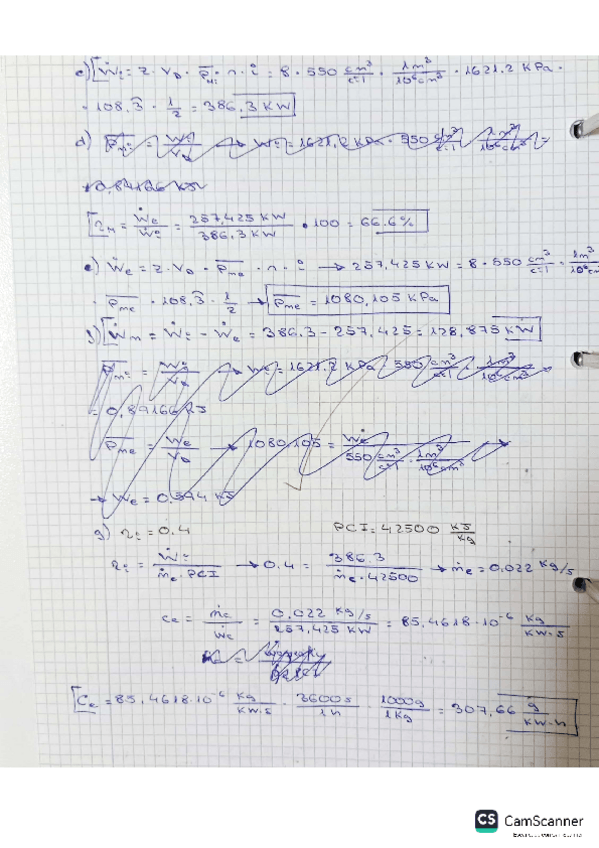 c) Ẇi = z · VD · p̅mi · n · i = 8 · 550 cm³/cil · 1m³/10⁶cm³ · 1621.2 KPa ·
· 108.3̂ · 1/2 = 386,3 KW
d) p̅mi = Wi/VD → Wi = 1621,2 KPa · 550 cm³/cil · 1m³/10⁶cm³ =
ηM = Ẇe/Ẇi = 257,425 KW / 386.3 KW · 100 = 66.6%
e) Ẇe = z · VD · p̅me · n · i → 257,425 KW = 8 · 550 cm³/cil · 1m³/10⁶cm³
· p̅me · 108.3̂ · 1/2 → p̅me = 1080,105 KPa
f) Ẇm = Ẇi - Ẇe = 386.3 - 257,425 = 128,875 KW
p̅mi = Wi/VD → Wi = 1621,2 KPa · 550 cm³/cil · 1m³/10⁶cm³
= 0,89166 KJ
p̅me = We/VD → 1080,105 = We / 550 cm³/cil · 1m³/10⁶cm³ →
→ We = 0,594 KJ
g) ηi = 0.4 PCI = 42500 KJ/Kg
ηi = Ẇi / ṁc · PCI → 0.4 = 386.3 / ṁc · 42500 → ṁc = 0,022 Kg/s
ce = ṁc / Ẇe = 0,022 Kg/s / 257,425 KW = 85,4618 · 10⁻⁶ Kg/KW·s
Ce = 85,4618 · 10⁻⁶ Kg/KW·s · 3600s/1h · 1000g/1Kg = 307,66 g/KW·h
CS CamScanner